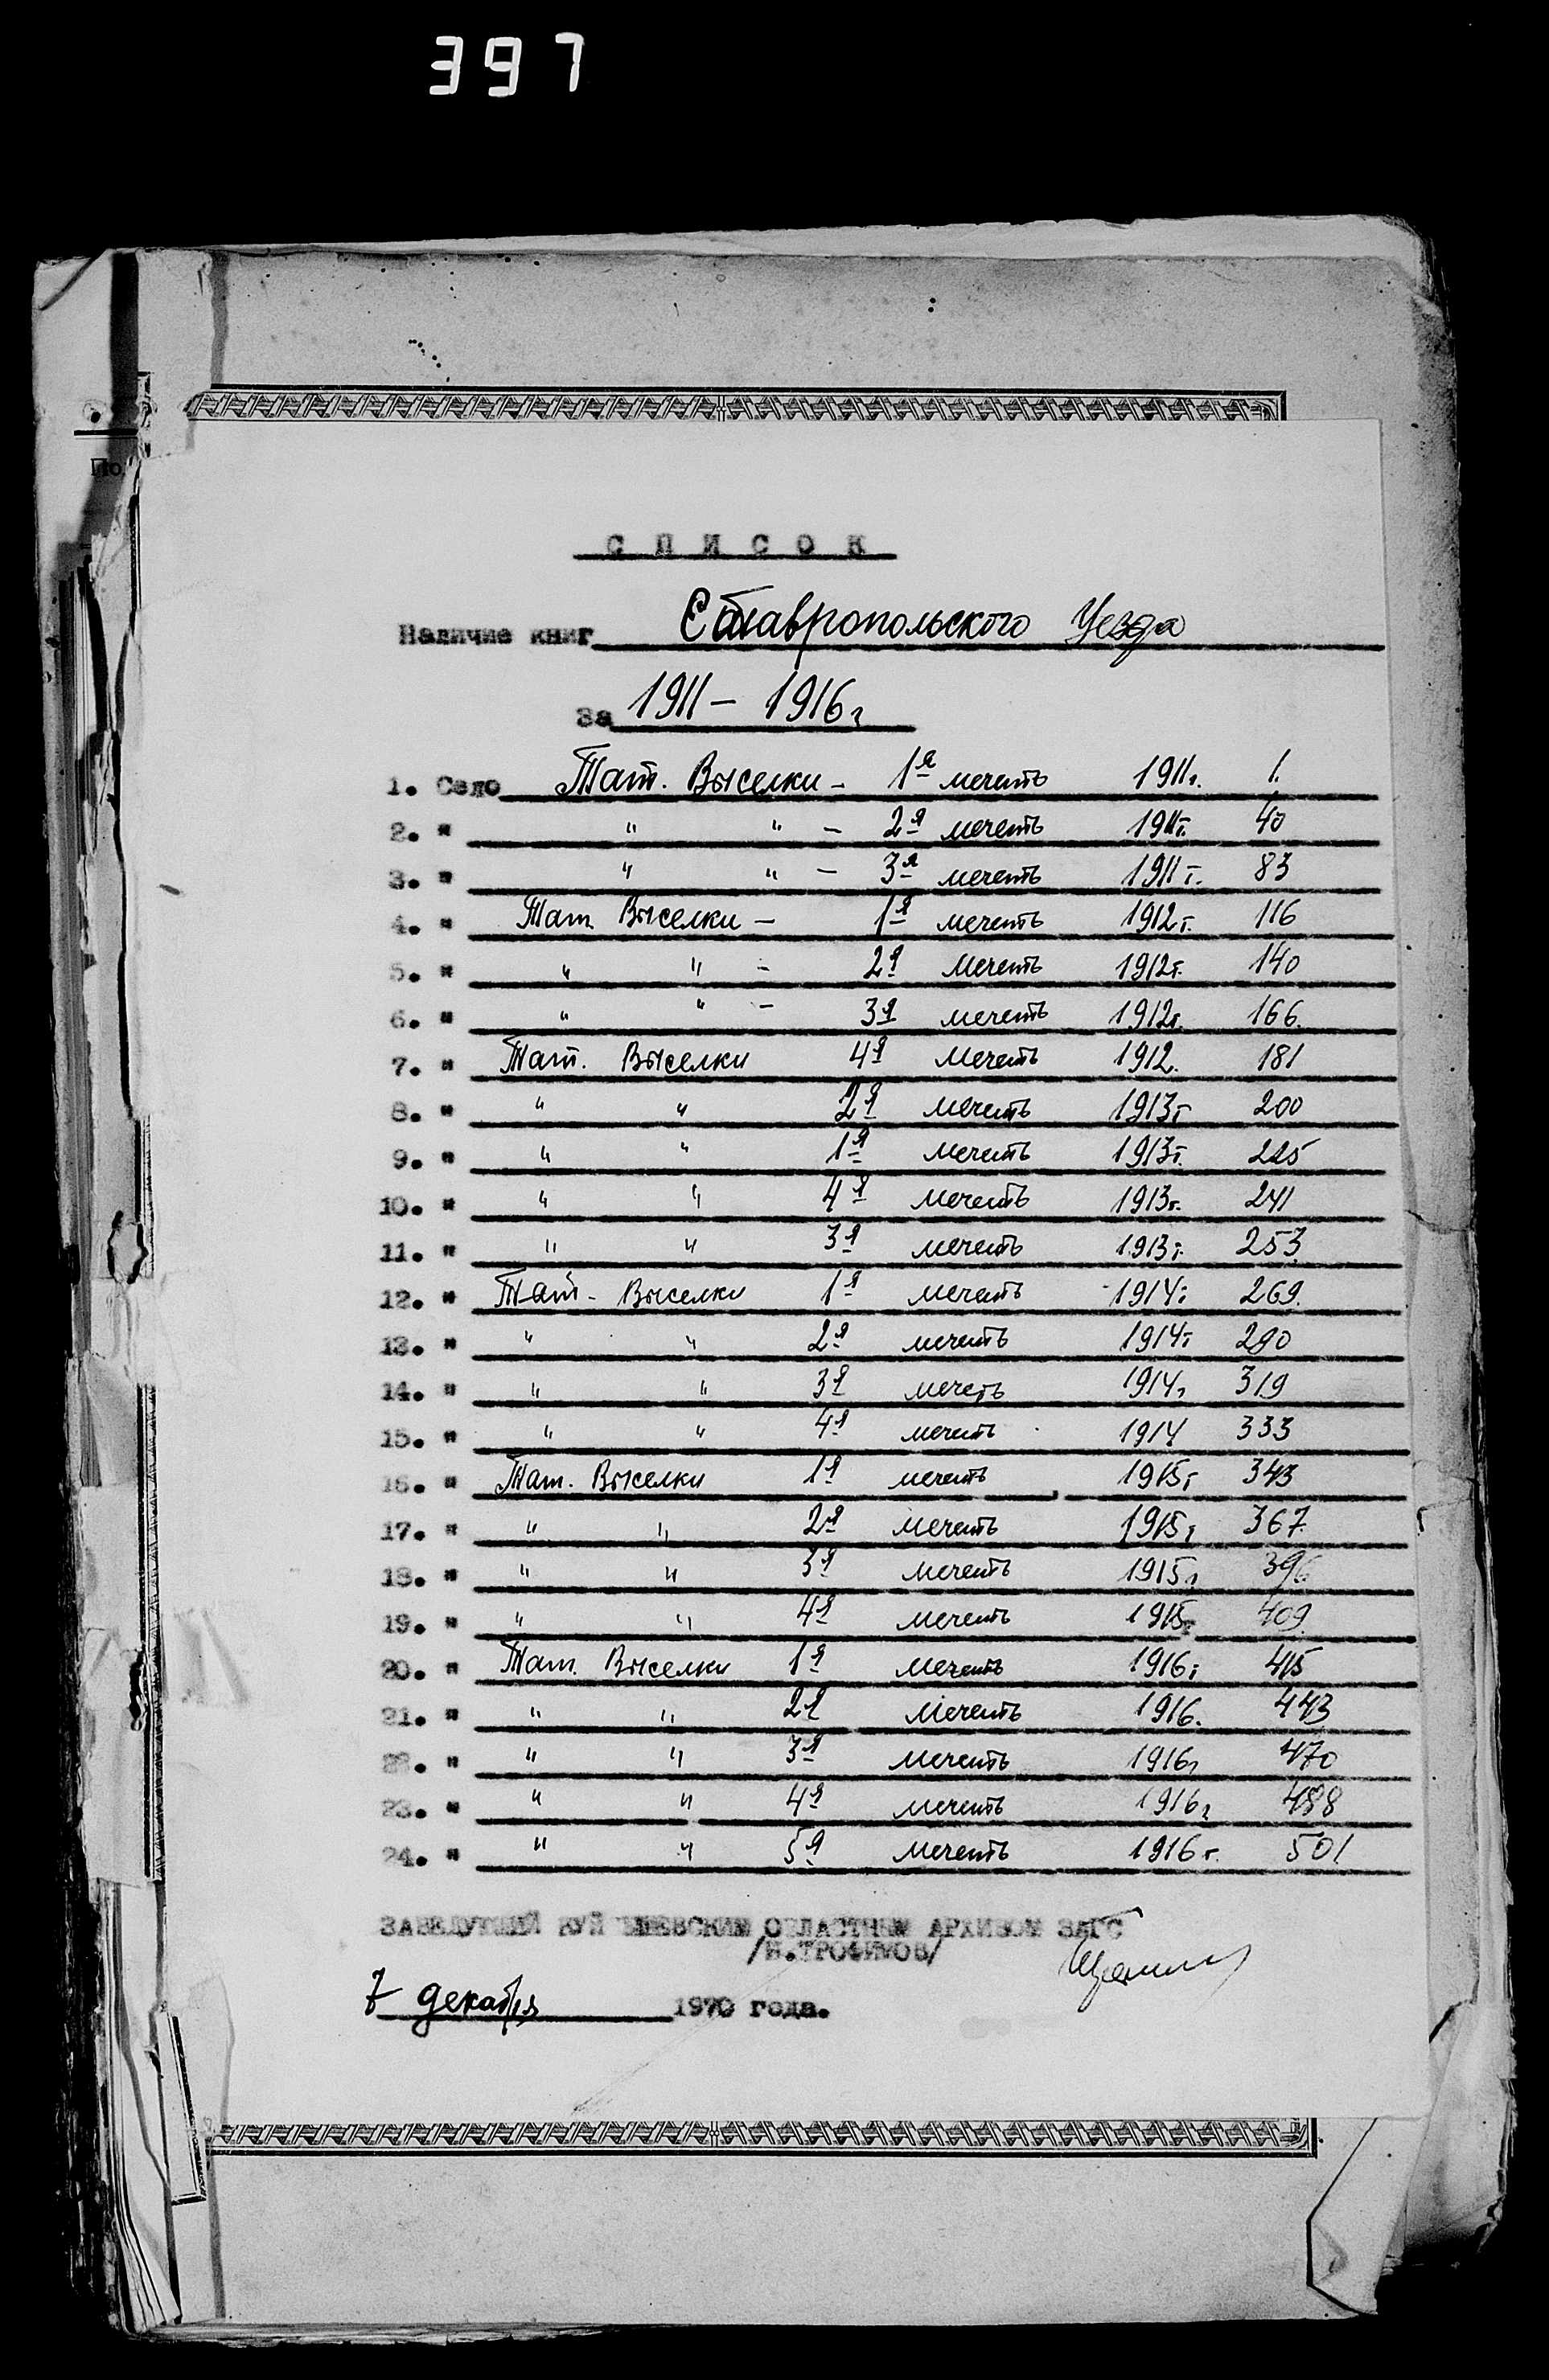 397
По
СПИСОК
Наличие книг Ставропольского Уезда
За 1911 – 1916г
1. Село Тат. Выселки – 1я мечеть 1911г. 1.
2. " " " – 2я мечеть 1911г. 40
3. " " " – 3я мечеть 1911г. 83
4. " Тат. Выселки – 1я мечеть 1912г. 116
5. " " " – 2я мечеть 1912г. 140
6. " " " – 3я мечеть 1912г. 166.
7. " Тат. Выселки 4я мечеть 1912. 181
8. " " " 2я мечеть 1913г 200
9. " " " 1я мечеть 1913г. 225
10. " " " 4я мечеть 1913г. 241
11. " " " 3я мечеть 1913г. 253
12. " Тат. Выселки 1я мечеть 1914г 269.
13. " " " 2я мечеть 1914г 290
14. " " " 3я мечеть 1914г 319
15. " " " 4я мечеть 1914 333
16. " Тат. Выселки 1я мечеть 1915г 343
17. " " " 2я мечеть 1915г 367.
18. " " " 3я мечеть 1915г 396
19. " " " 4я мечеть 1915г 409
20. " Тат. Выселки 1я мечеть 1916г 415
21. " " " 2я мечеть 1916. 443
22. " " " 3я мечеть 1916г 470
23. " " " 4я мечеть 1916г 488
24. " " " 5я мечеть 1916г. 501
ЗАВЕДУЮЩИЙ КУЙБЫШЕВСКИМ ОБЛАСТНЫМ АРХИВОМ ЗАГС
/Н.ТРОФИМОВ/
7 декабря 1970 года.